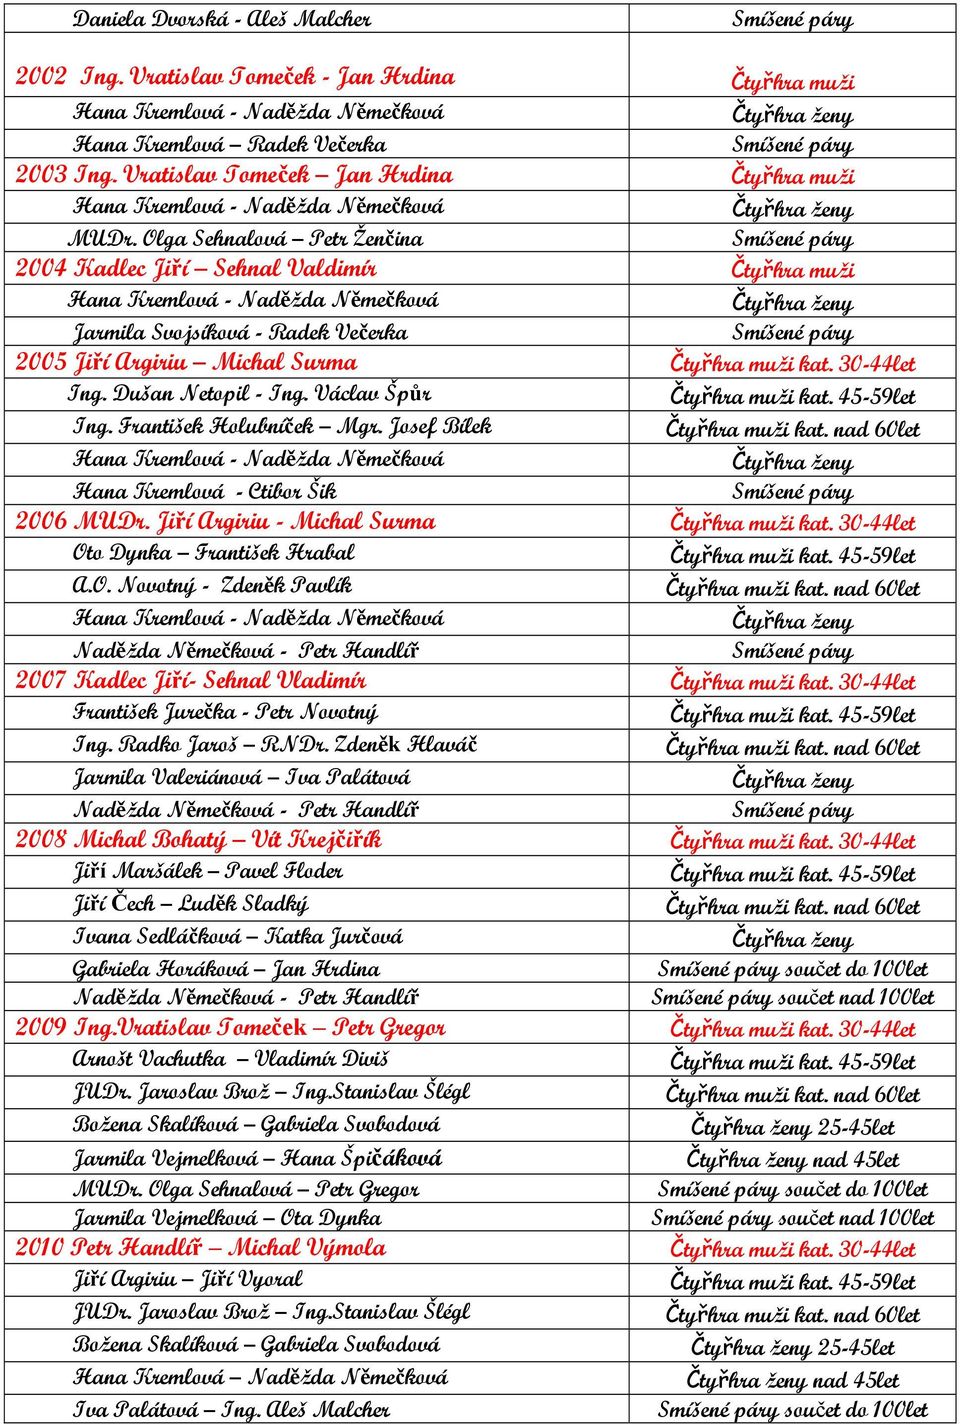 Daniela Dvorská - Aleš Malcher Smíšené páry
2002 Ing. Vratislav Tomeček - Jan Hrdina Čtyřhra muži
Hana Kremlová - Naděžda Němečková Čtyřhra ženy
Hana Kremlová – Radek Večerka Smíšené páry
2003 Ing. Vratislav Tomeček – Jan Hrdina Čtyřhra muži
Hana Kremlová - Naděžda Němečková Čtyřhra ženy
MUDr. Olga Sehnalová – Petr Ženčina Smíšené páry
2004 Kadlec Jiří – Sehnal Valdimír Čtyřhra muži
Hana Kremlová - Naděžda Němečková Čtyřhra ženy
Jarmila Svojsíková - Radek Večerka Smíšené páry
2005 Jiří Argiriu – Michal Surma Čtyřhra muži kat. 30-44let
Ing. Dušan Netopil - Ing. Václav Špůr Čtyřhra muži kat. 45-59let
Ing. František Holubníček – Mgr. Josef Bílek Čtyřhra muži kat. nad 60let
Hana Kremlová - Naděžda Němečková Čtyřhra ženy
Hana Kremlová - Ctibor Šik Smíšené páry
2006 MUDr. Jiří Argiriu - Michal Surma Čtyřhra muži kat. 30-44let
Oto Dynka – František Hrabal Čtyřhra muži kat. 45-59let
A.O. Novotný - Zdeněk Pavlík Čtyřhra muži kat. nad 60let
Hana Kremlová - Naděžda Němečková Čtyřhra ženy
Naděžda Němečková - Petr Handlíř Smíšené páry
2007 Kadlec Jiří- Sehnal Vladimír Čtyřhra muži kat. 30-44let
František Jurečka - Petr Novotný Čtyřhra muži kat. 45-59let
Ing. Radko Jaroš – RNDr. Zdeněk Hlaváč Čtyřhra muži kat. nad 60let
Jarmila Valeriánová – Iva Palátová Čtyřhra ženy
Naděžda Němečková - Petr Handlíř Smíšené páry
2008 Michal Bohatý – Vít Krejčiřík Čtyřhra muži kat. 30-44let
Jiří Maršálek – Pavel Floder Čtyřhra muži kat. 45-59let
Jiří Čech – Luděk Sladký Čtyřhra muži kat. nad 60let
Ivana Sedláčková – Katka Jurčová Čtyřhra ženy
Gabriela Horáková – Jan Hrdina Smíšené páry součet do 100let
Naděžda Němečková - Petr Handlíř Smíšené páry součet nad 100let
2009 Ing.Vratislav Tomeček – Petr Gregor Čtyřhra muži kat. 30-44let
Arnošt Vachutka – Vladimír Diviš Čtyřhra muži kat. 45-59let
JUDr. Jaroslav Brož – Ing.Stanislav Šlégl Čtyřhra muži kat. nad 60let
Božena Skalíková – Gabriela Svobodová Čtyřhra ženy 25-45let
Jarmila Vejmelková – Hana Špičáková Čtyřhra ženy nad 45let
MUDr. Olga Sehnalová – Petr Gregor Smíšené páry součet do 100let
Jarmila Vejmelková – Ota Dynka Smíšené páry součet nad 100let
2010 Petr Handlíř – Michal Výmola Čtyřhra muži kat. 30-44let
Jiří Argiriu – Jiří Vyoral Čtyřhra muži kat. 45-59let
JUDr. Jaroslav Brož – Ing.Stanislav Šlégl Čtyřhra muži kat. nad 60let
Božena Skalíková – Gabriela Svobodová Čtyřhra ženy 25-45let
Hana Kremlová – Naděžda Němečková Čtyřhra ženy nad 45let
Iva Palátová – Ing. Aleš Malcher Smíšené páry součet do 100let